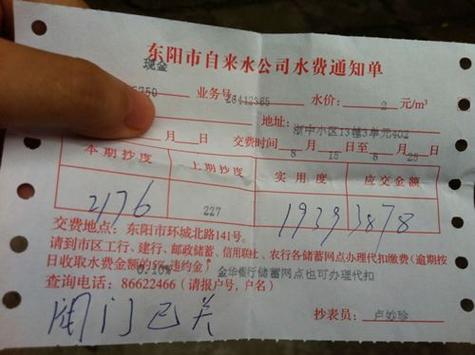 东阳市自来水公司水费通知单
现金
5750 业务号 26412365 水价: 2 元/m³
地址: 浙中小区13幢3单元402
月 日 交费时间 8 月 15 日至 8 月 25 日
本期抄度 上期抄度 实用度 应交金额
2176 227 1939 3878
交费地点: 东阳市环城北路141号。
请到市区工行、建行、邮政储蓄、信用联社、农行各储蓄网点办理代扣缴费(逾期按
日收取水费金额的 0.10% 违约金) 金华银行储蓄网点也可办理代扣
查询电话: 86622466 (请报户号,户名)
闸门已关 抄表员: 卢妙珍